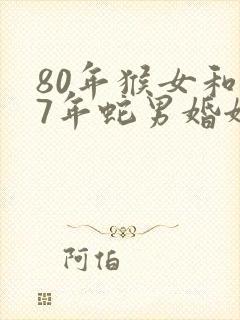 80年猴女和
7年蛇男婚
阿伯